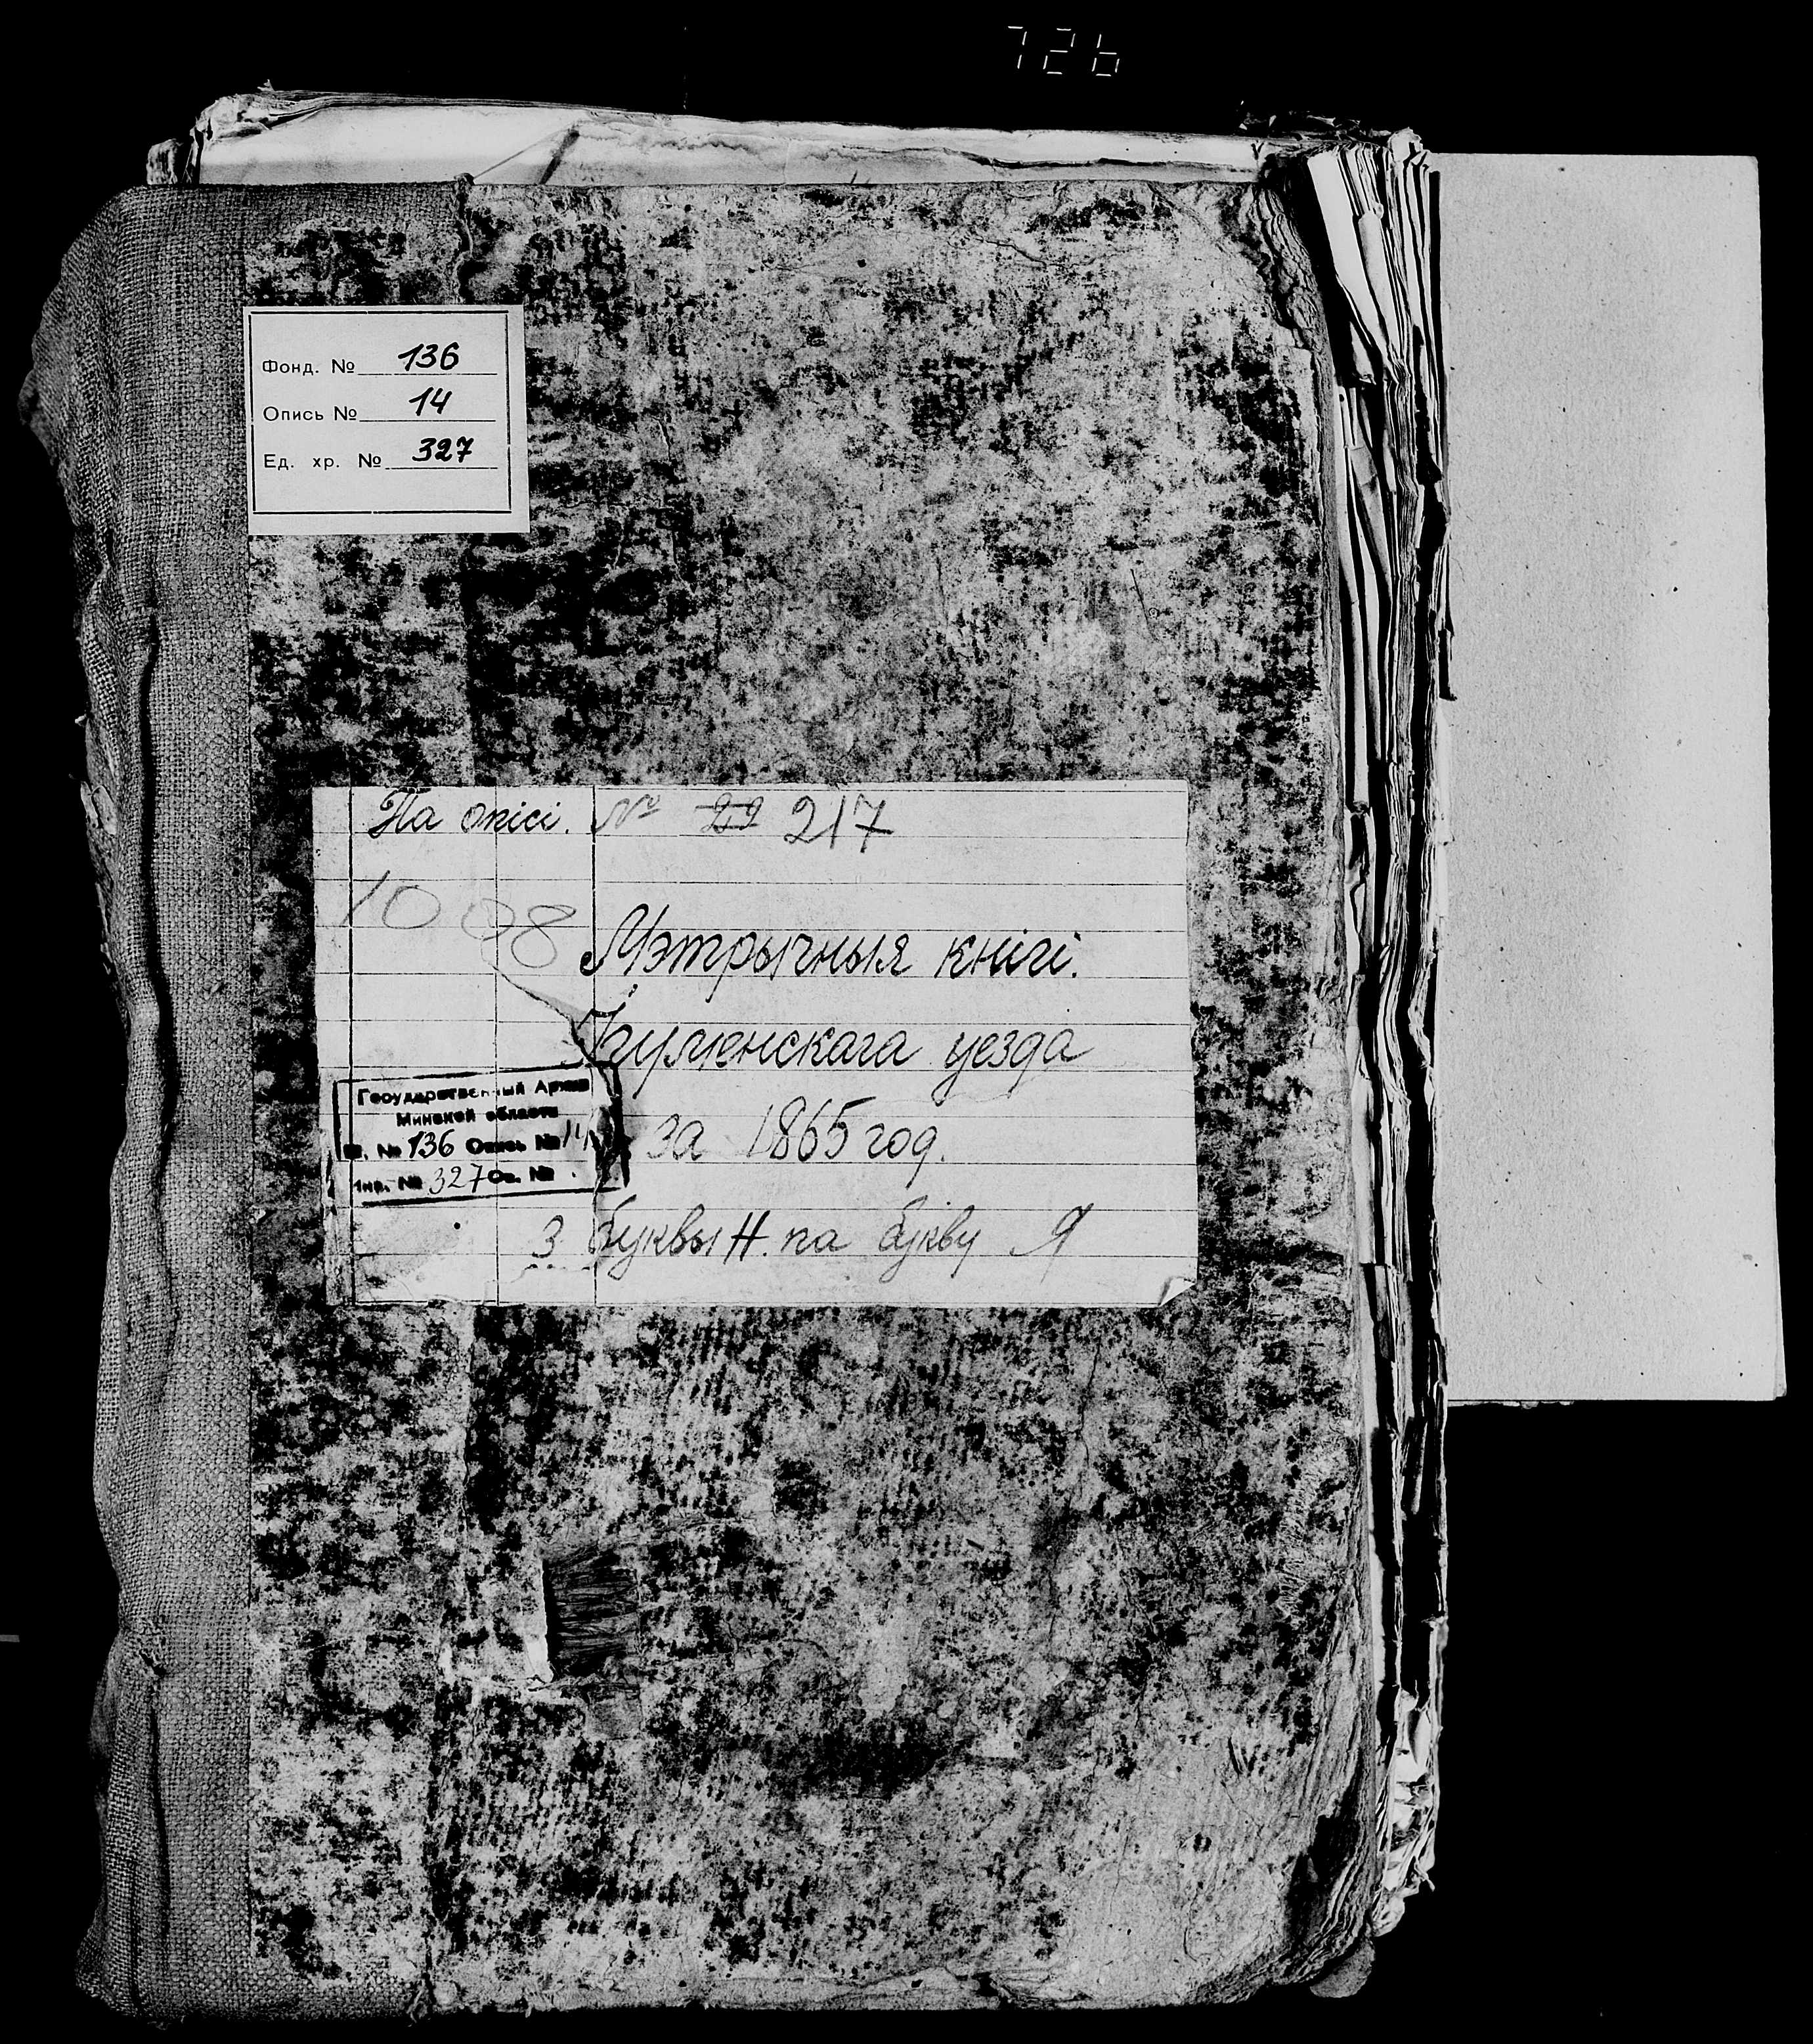 726
Фонд. № 136
Опись № 14
Ед. хр. № 327
Па опісі. № 22 217
1008
Мэтрычныя кнігі.
Ігуменскага уезда
за 1865 год.
З буквы Н. па букву Я
Государственный Архив
Минской области
Ф. № 136 Опись № 14
Инв. № 327 Св. №